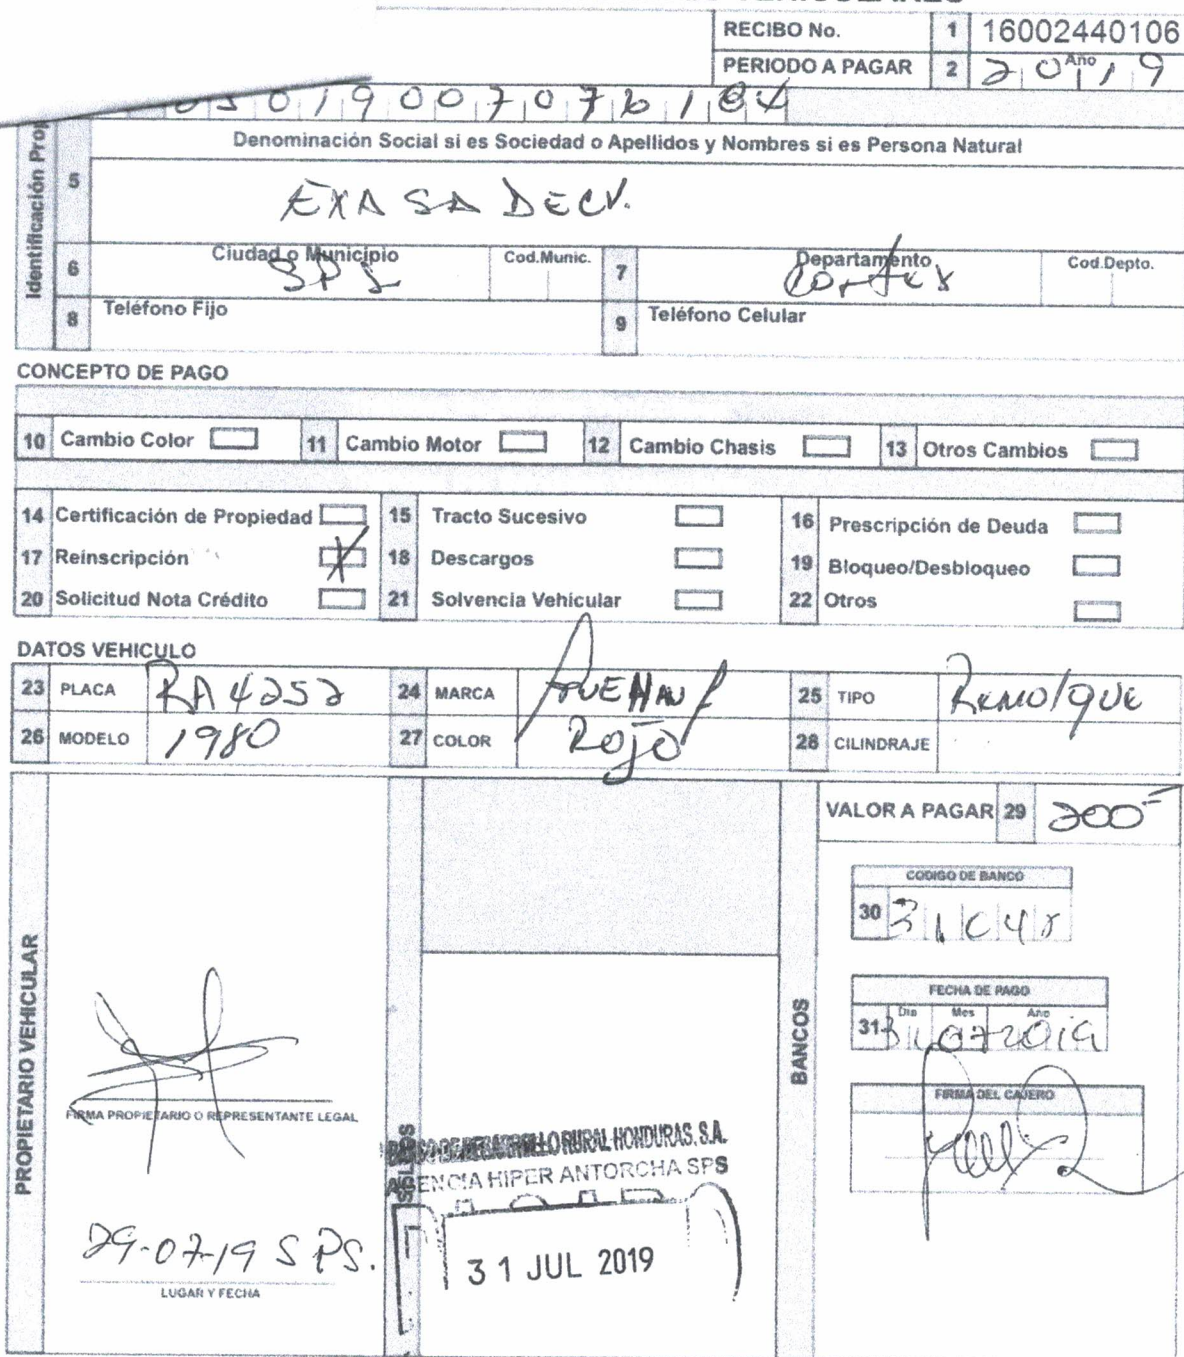 RECIBO No. 1 16002440106
PERIODO A PAGAR 2 Año 2019
Identificación Prop
Denominación Social si es Sociedad o Apellidos y Nombres si es Persona Natural
5 EXA SA DECV.
6 Ciudad o Municipio SPS Cod.Munic. 7 Departamento Cortes Cod.Depto.
8 Teléfono Fijo 9 Teléfono Celular
CONCEPTO DE PAGO
10 Cambio Color 11 Cambio Motor 12 Cambio Chasis 13 Otros Cambios
14 Certificación de Propiedad 15 Tracto Sucesivo 16 Prescripción de Deuda
17 Reinscripción X 18 Descargos 19 Bloqueo/Desbloqueo
20 Solicitud Nota Crédito 21 Solvencia Vehicular 22 Otros
DATOS VEHICULO
23 PLACA RA4252 24 MARCA 25 TIPO Remolque
26 MODELO 1980 27 COLOR Rojo 28 CILINDRAJE
PROPIETARIO VEHICULAR
FIRMA PROPIETARIO O REPRESENTANTE LEGAL
29-07-19 S PS.
LUGAR Y FECHA
SELLOS
BANCO DE DESARROLLO RURAL HONDURAS, S.A.
AGENCIA HIPER ANTORCHA SPS
31 JUL 2019
BANCOS
VALOR A PAGAR 29 200-
CODIGO DE BANCO
30
FECHA DE PAGO
31 Dia Mes Año 31 07 2019
FIRMA DEL CAJERO